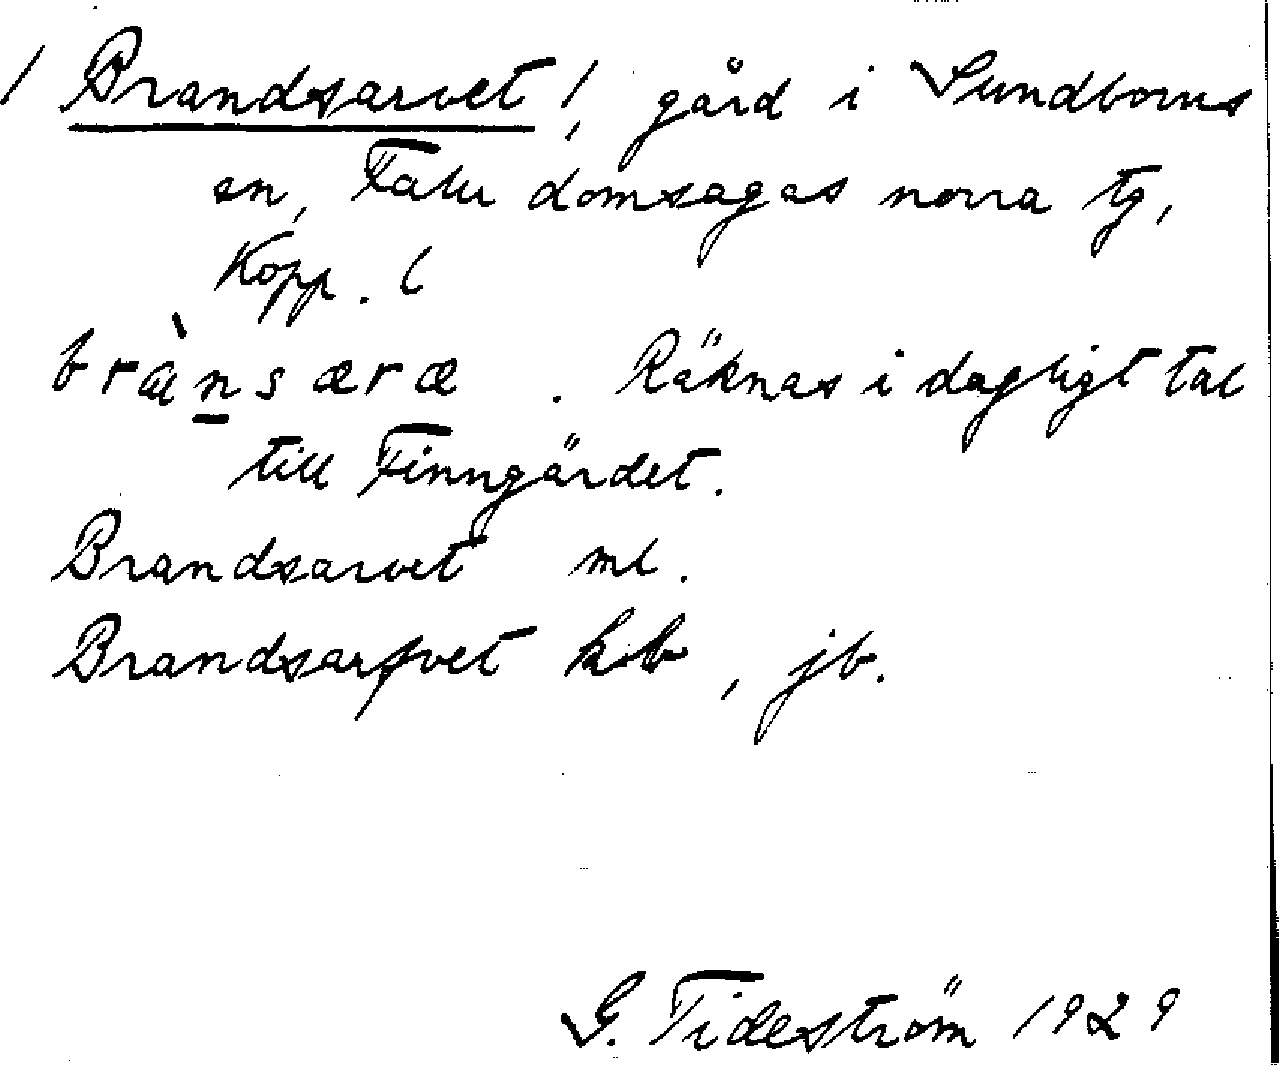 / Brandsarvet /, gård i Sundborns
sn, Falu domsagas norra tg,
Kopp. l
brànsæræ . Räknas i dagligt tal
till Finngärdet.
Brandsarvet ml.
Brandsarfvet kb, jb.
G. Tideström 1929